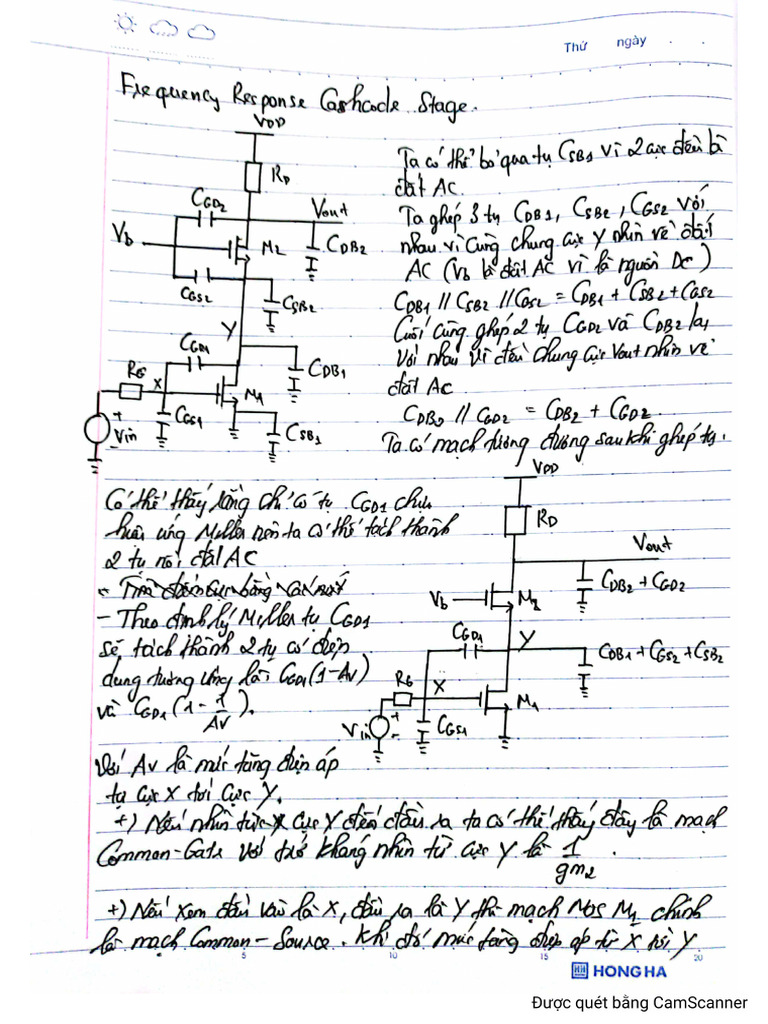 Thứ ngày
Frequency Response Cashcode Stage.
VDD
RD
CGD2
Vout
Vb
M2
CDB2
CGS2
CSB2
Y
CGD1
CDB1
RG
X
M1
CGS1
Vin
CSB1
Ta có thể bỏ qua tụ CSB1 vì 2 cực đều là
đất AC.
Ta ghép 3 tụ CDB1, CSB2, CGS2 với
nhau vì cùng chung cực Y nhìn về đất
AC (Vb là đất AC vì là nguồn DC)
CDB1 // CSB2 // CGS2 = CDB1 + CSB2 + CGS2
Cuối cùng ghép 2 tụ CGD2 và CDB2 lại
với nhau vì đều chung cực Vout nhìn về
đất AC
CDB2 // CGD2 = CDB2 + CGD2
Ta có mạch tương đương sau khi ghép tụ.
Có thể thấy rằng chỉ có tụ CGD1 chịu
hiệu ứng Miller nên ta có thể tách thành
2 tụ nối đất AC
- Theo định lý Miller tụ CGD1
sẽ tách thành 2 tụ có điện
dung tương ứng là: CGD1(1-Av)
và CGD1(1-1/Av).
VDD
RD
Vout
CDB2 + CGD2
Vb
M2
CGD1
Y
CDB1 + CGS2 + CSB2
RG
X
M1
Vin
CGS1
Với Av là mức tăng điện áp
từ cực X tới cực Y.
+) Nếu nhìn từ cực Y đến đầu ra ta có thể thấy đây là mạch
Common-Gate với trở kháng nhìn từ cực Y là 1/gm2.
+) Nếu xem đầu vào là X, đầu ra là Y thì mạch Mos M1 chính
là mạch Common-Source. Khi đó mức tăng điện áp từ X tới Y
5 10 15 20
HONG HA
Được quét bằng CamScanner